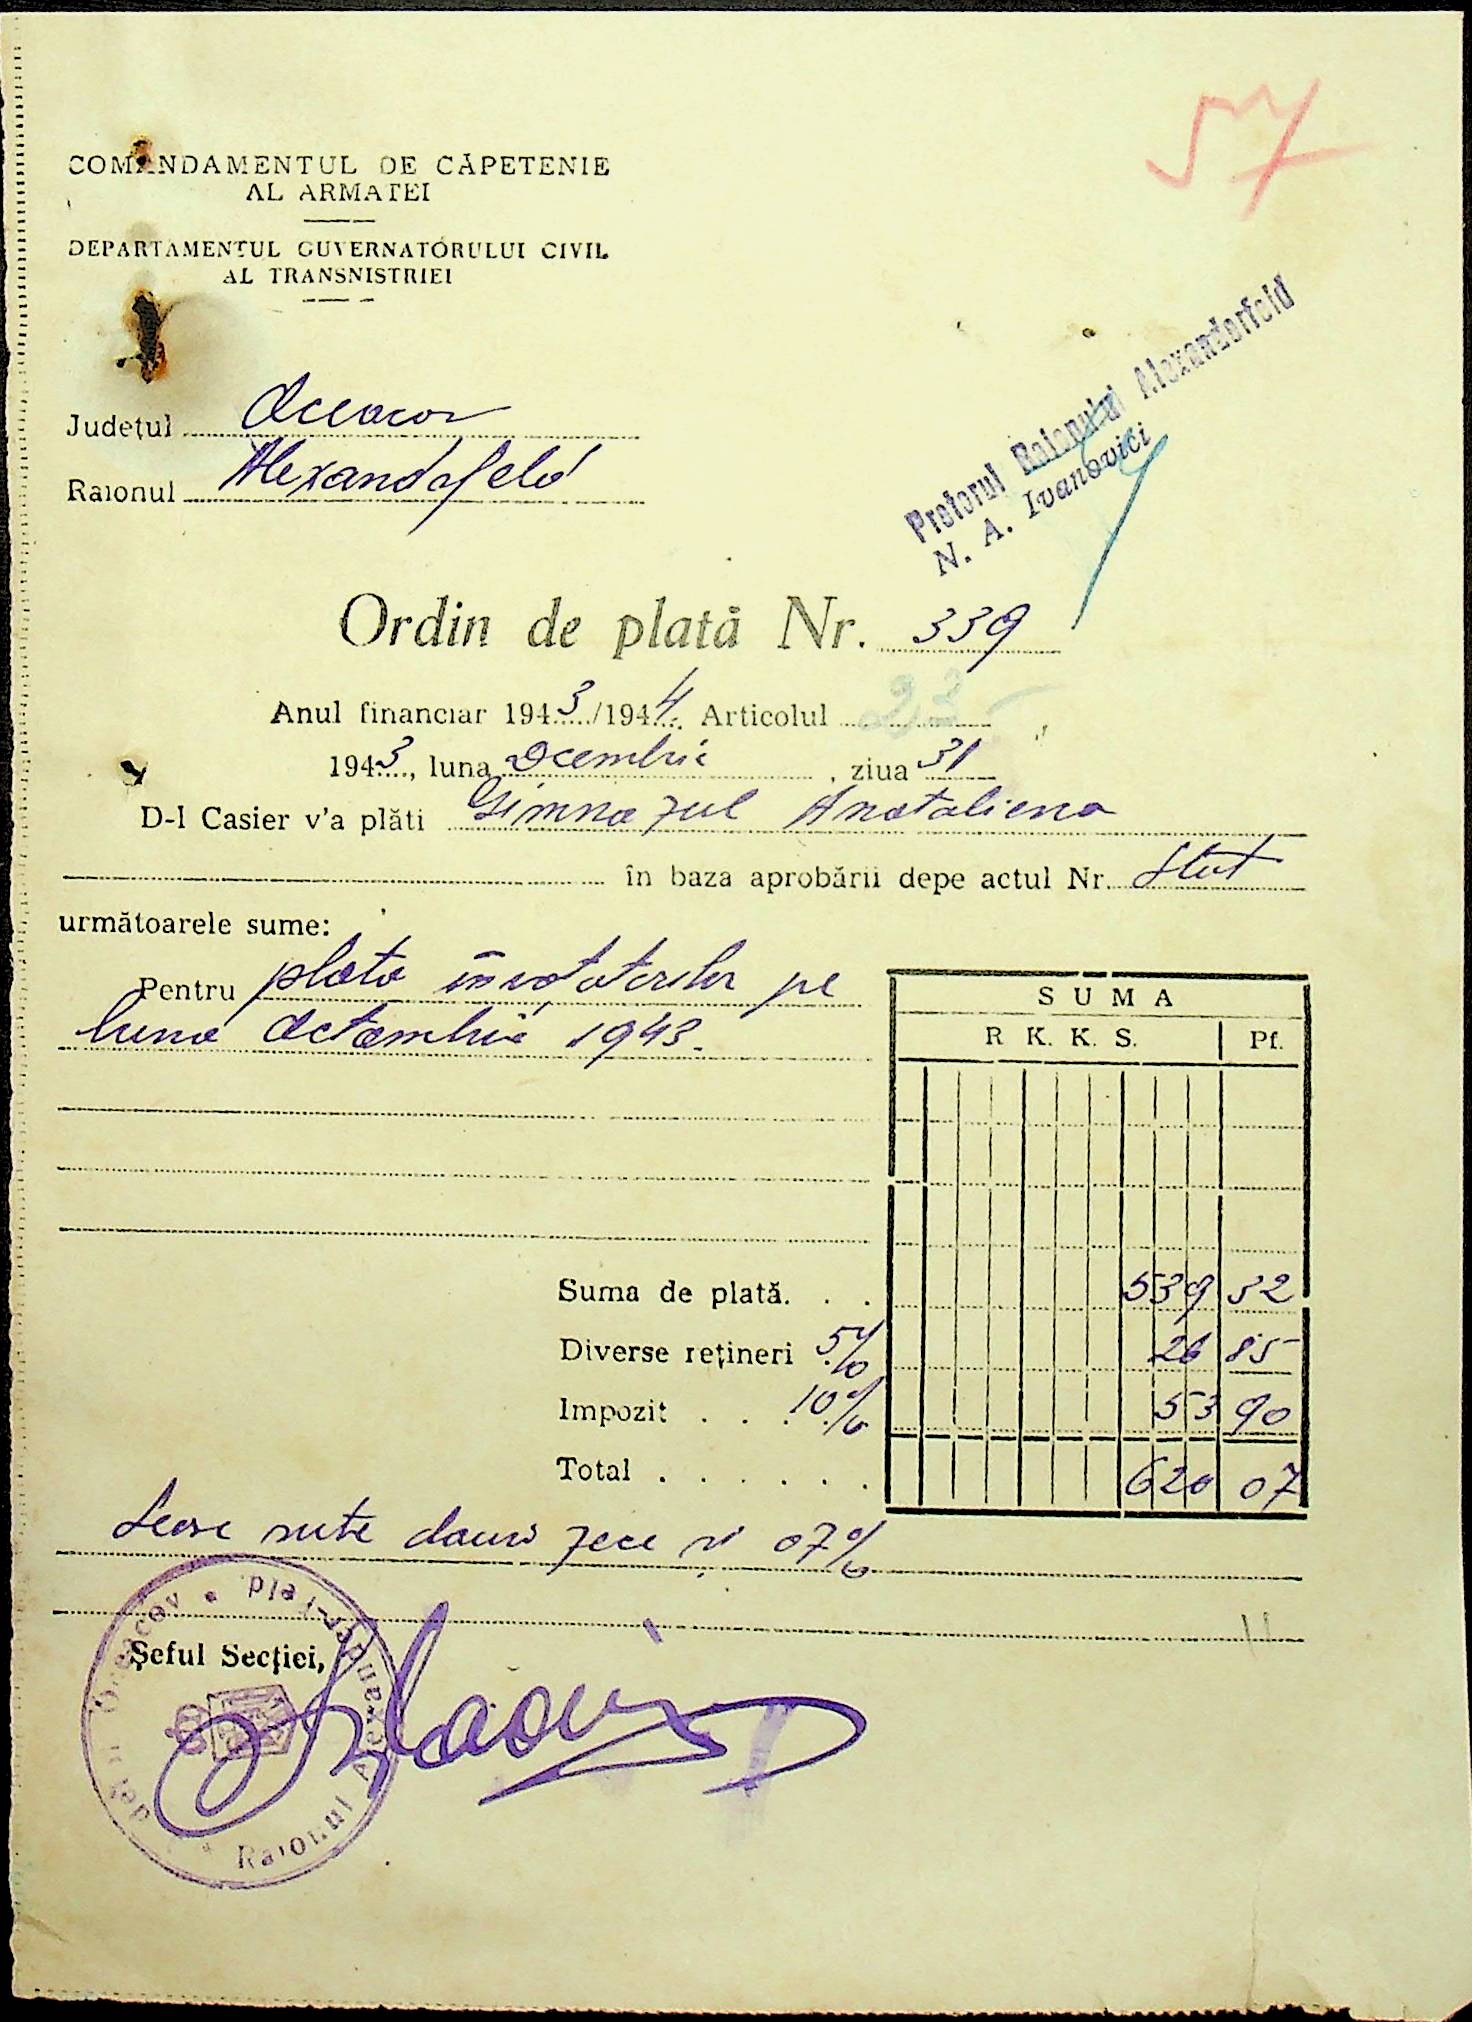 57
COMANDAMENTUL DE CĂPETENIE
AL ARMATEI
DEPARTAMENTUL GUVERNATORULUI CIVIL
AL TRANSNISTRIEI
Pretorul Raionului Alexanderfeld
N. A. Ivanovici
Județul Oceacov
Raionul Alexandrfeld
Ordin de plată Nr. 339
Anul financiar 1943/1944 Articolul 23
1943, luna Dcembrie, ziua 31
D-l Casier v'a plăti Gimnazul Anataliena
în baza aprobării depe actul Nr. Stat
următoarele sume:
Pentru plata învatatorilor pe
luna Octombrie 1943.
SUMA
R. K. K. S. Pf.
Suma de plată. . . 539 32
Diverse rețineri 5% 26 85
Impozit . . . 10% 53 90
Total . . . . . . 620 07
Sease sute douăzece și 07%
Șeful Secției,
Raionul Alexander-Feld * județul Oceacov *